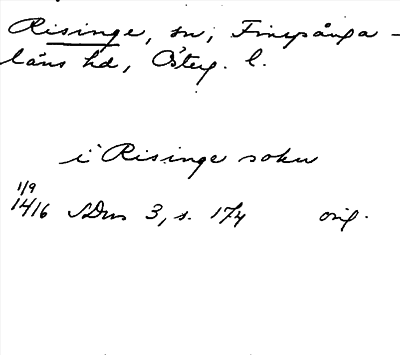 Risinge, sn, Finspånga-
läns hd, Österg. l.
i Risinge sokn
1/9
1416 SDns 3, s. 174 orig.